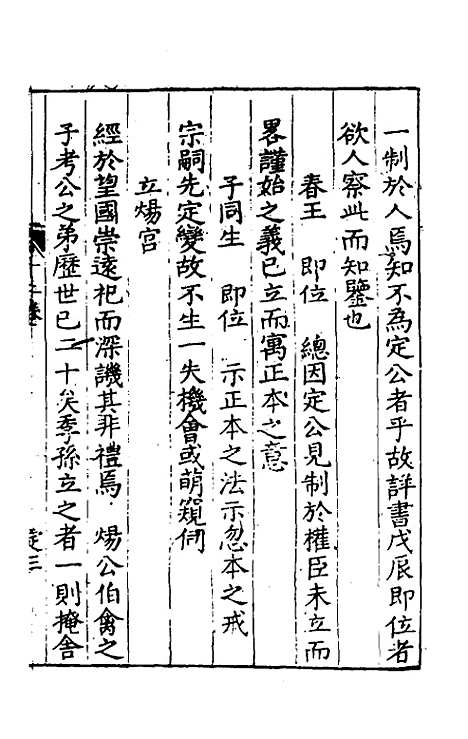 一制於人焉知不為定公者乎故詳書戊辰即位者
欲人察此而知鑒也
春王　即位　總因定公見制於權臣未立而
畧謹始之義已立而寓正本之意
子同生　即位　示正本之法示忽本之戒
宗嗣先定變故不生一失機會或萌窺伺
立煬宮
經於望國崇遠祀而深譏其非禮焉　煬公伯禽之
子考公之弟歷世已二十矣季孫立之者一則掩舍
定三